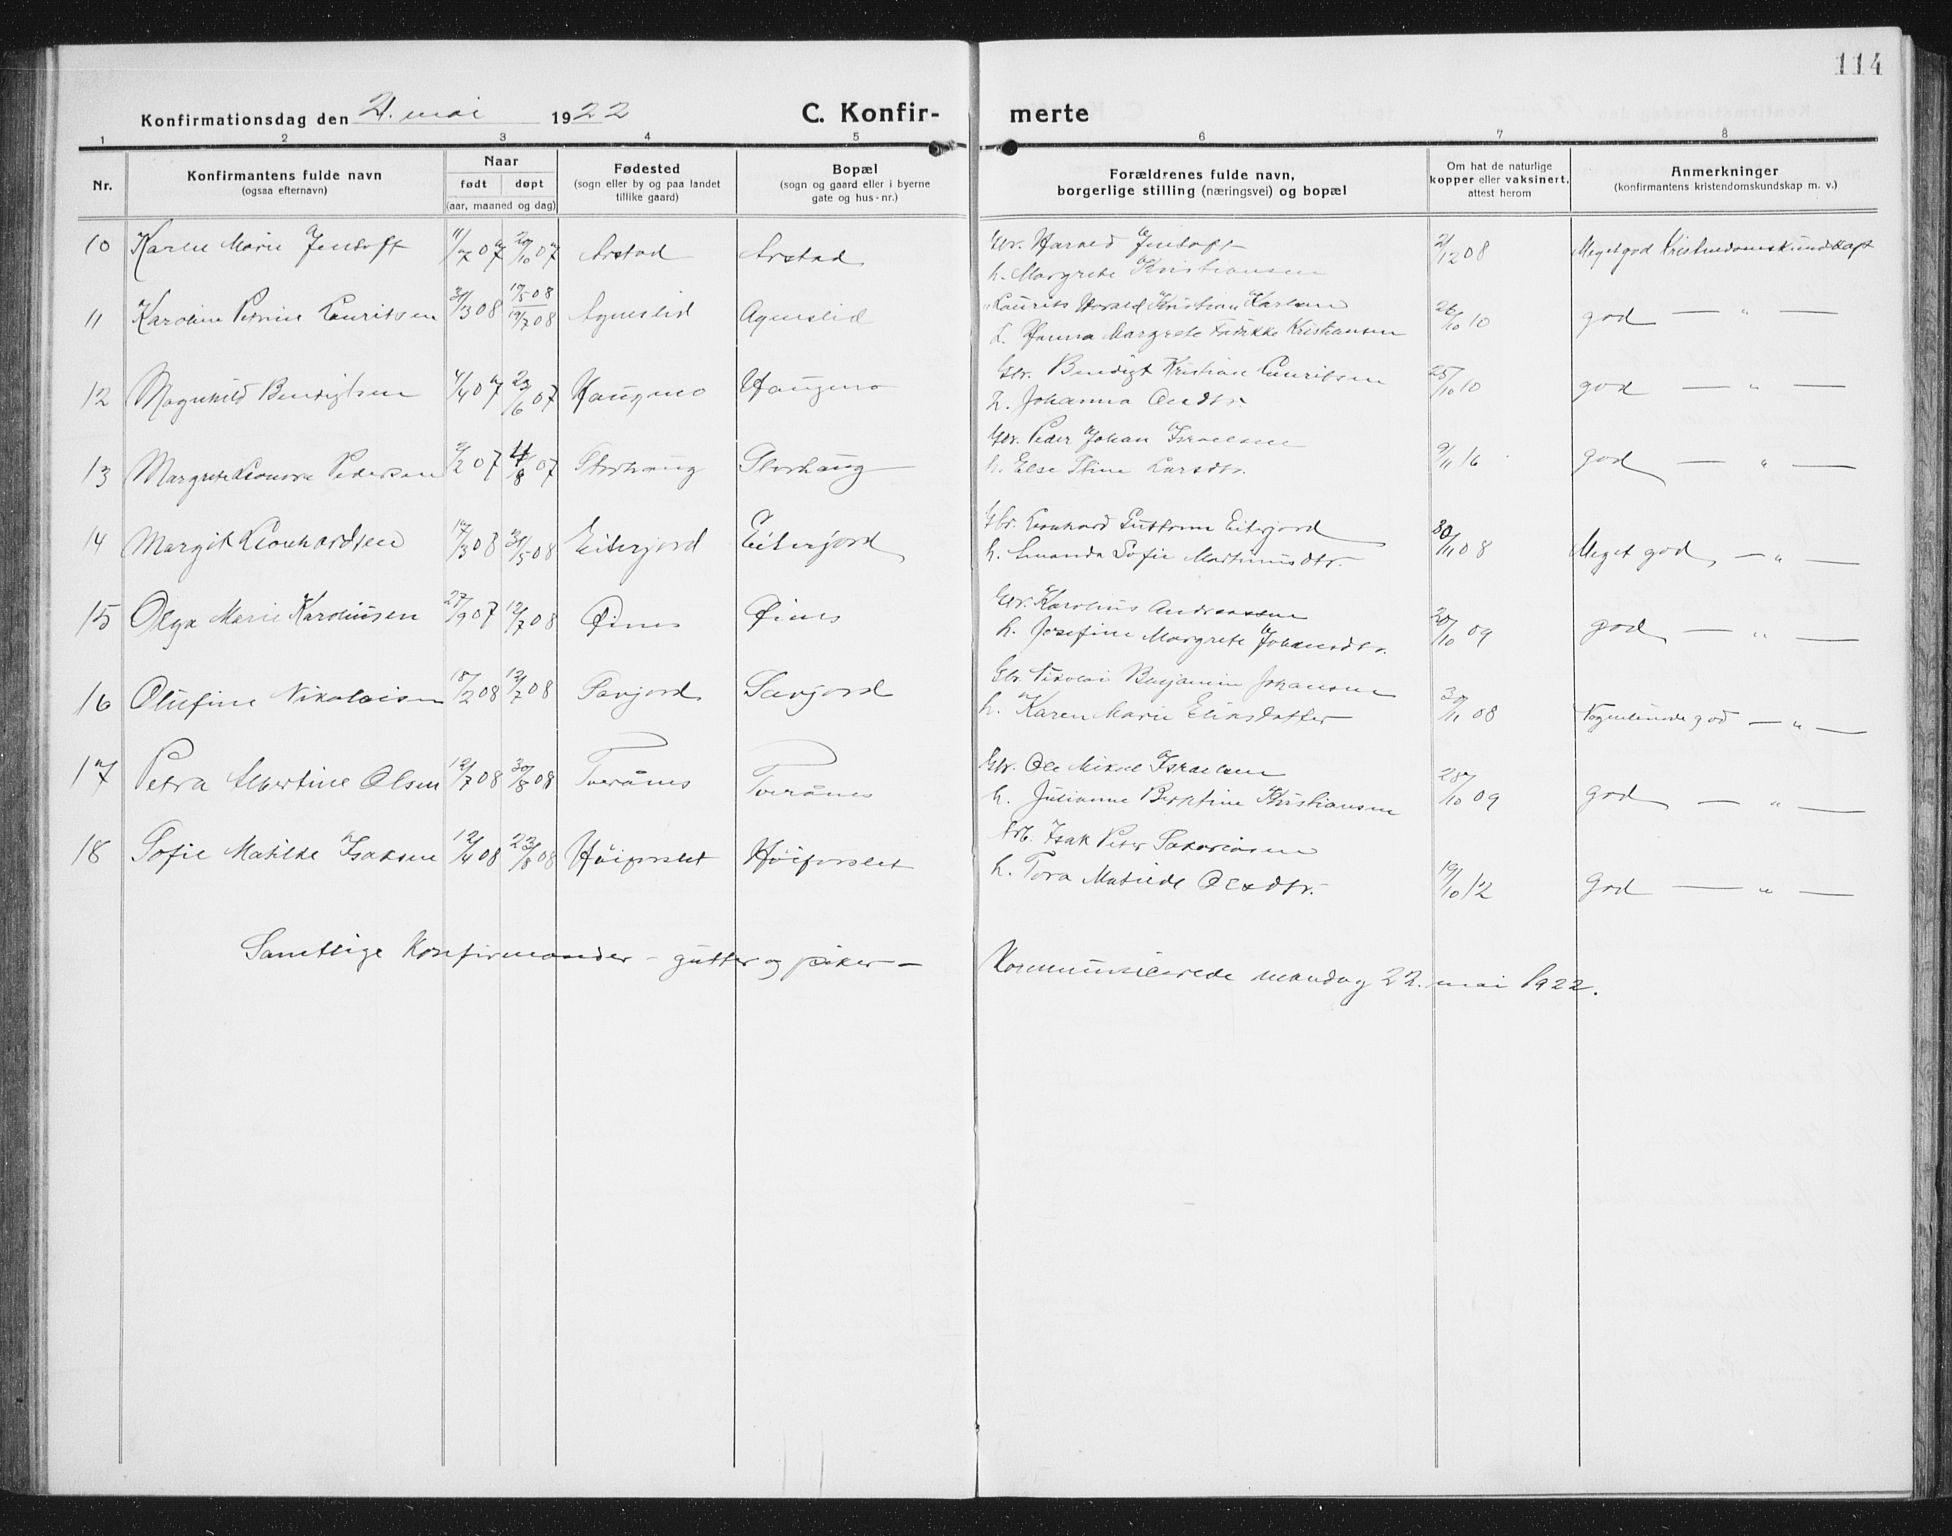 114
Konfirmationsdag den 21. mai 1922 C. Konfir- merte
1 2 3 4 5 6 7 8
Nr.
Konfirmantens fulde navn
(ogsaa efternavn)
Naar
født døpt
(aar, maaned og dag)
Fødested
(sogn eller by og paa landet
tillike gaard)
Bopæl
(sogn og gaard eller i byerne
gate og hus-nr.)
Forældrenes fulde navn,
borgerlige stilling (næringsvei) og bopæl
Om hat de naturlige
kopper eller vaksinert,
attest herom
Anmerkninger
(konfirmantens kristendomskundskap m. v.)
10 Karen Marie Jentoft 11/7 07 20/10 07 Arstad Arstad
Gbr. Harald Jentoft
h. Margrete Kristiansen
2/12 08 Meget god Kristendomskundskap
11 Karoline Petrine Lauritsen 31/3 08 17/5 08 19/7 08 Agneslid Agneslid
Laurits Harald Kristian Karlsen
h. Hanna Margrete Fredrikke Kristiansen
26/10 10 god — " —
12 Magnhild Bendigtsen 4/4 07 23/6 07 Haugmo Haugmo
Gbr. Bendigt Kristian Lauritsen
h. Johanna Olsdtr.
25/10 10 god — " —
13 Margrete Leonora Pedersen 2/2 07 4/8 07 Storhaug Storhaug
Gbr. Peder Johan Israelsen
h. Else Stine Larsdtr.
9/11 16 god — " —
14 Margit Leonhardsen 17/3 08 31/5 08 Eiterjord Eiterjord
Gbr. Leonhard Guttorm Eiterjord
h. Amanda Sofie Martinusdtr.
30/11 08 Meget god — " —
15 Olga Marie Karoliusen 27/9 07 12/7 08 Øines Øines
Gbr. Karolius Andreassen
h. Josefine Margrete Johansdtr.
20/10 09 god — " —
16 Olufine Nikolaisen 18/2 08 12/7 08 Savjord Savjord
Gbr. Nikolai Benjamin Johansen
h. Karen Marie Eliasdatter
30/11 08 Nogenlunde god — " —
17 Petra Albertine Olsen 12/7 08 30/8 08 Tveraanes Tveraanes
Gbr. Ole Mikal Israelsen
h. Julianne Kristiansen
28/10 09 god — " —
18 Sofie Matilde Isaksen 12/4 08 23/8 08 Høiforslet Høiforslet
Arb. Isak Peter Sakariasen
h. Tora Matilde Olsdtr.
19/10 12 god — " —
Samtlige Konfirmander – gutter og piker – Kommunicerede mandag 22. mai 1922.